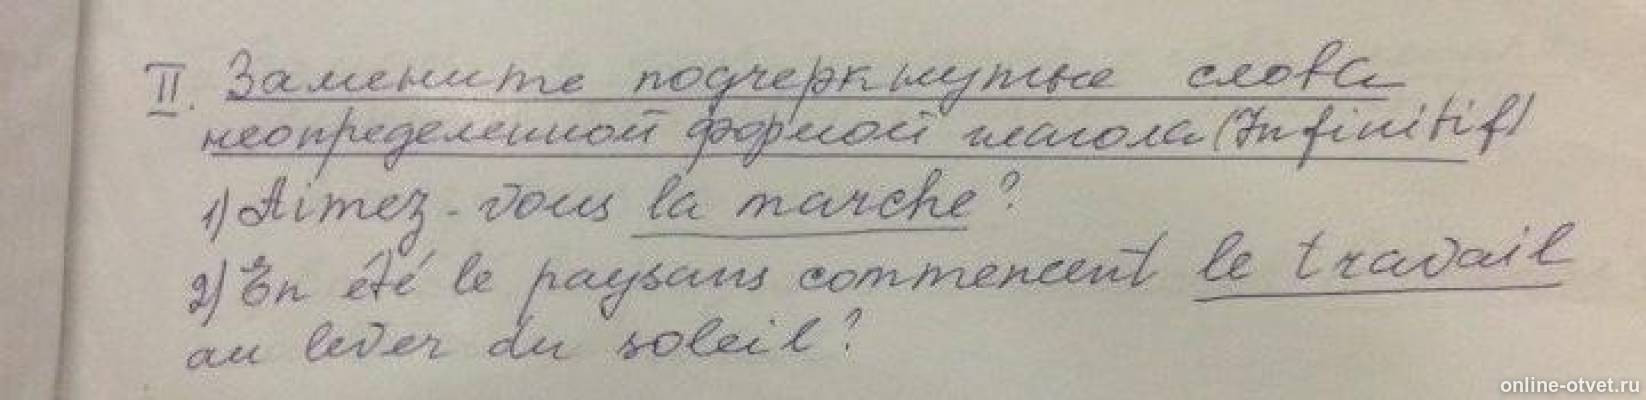 II. Замените подчеркнутые слова
неопределенной формой глагола (Infinitif)
1) Aimez-vous la marche?
2) En été le paysans commencent le travail
au lever du soleil?
online-otvet.ru